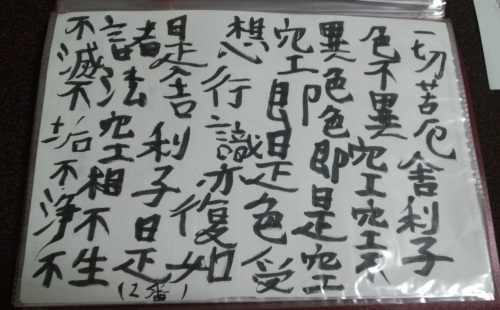 一切苦厄舎利子
色不異空空不
異色色即是空
空即是色受
想行識亦復如
是舎利子是
諸法空相不生
不滅不垢不浄不
(2番)